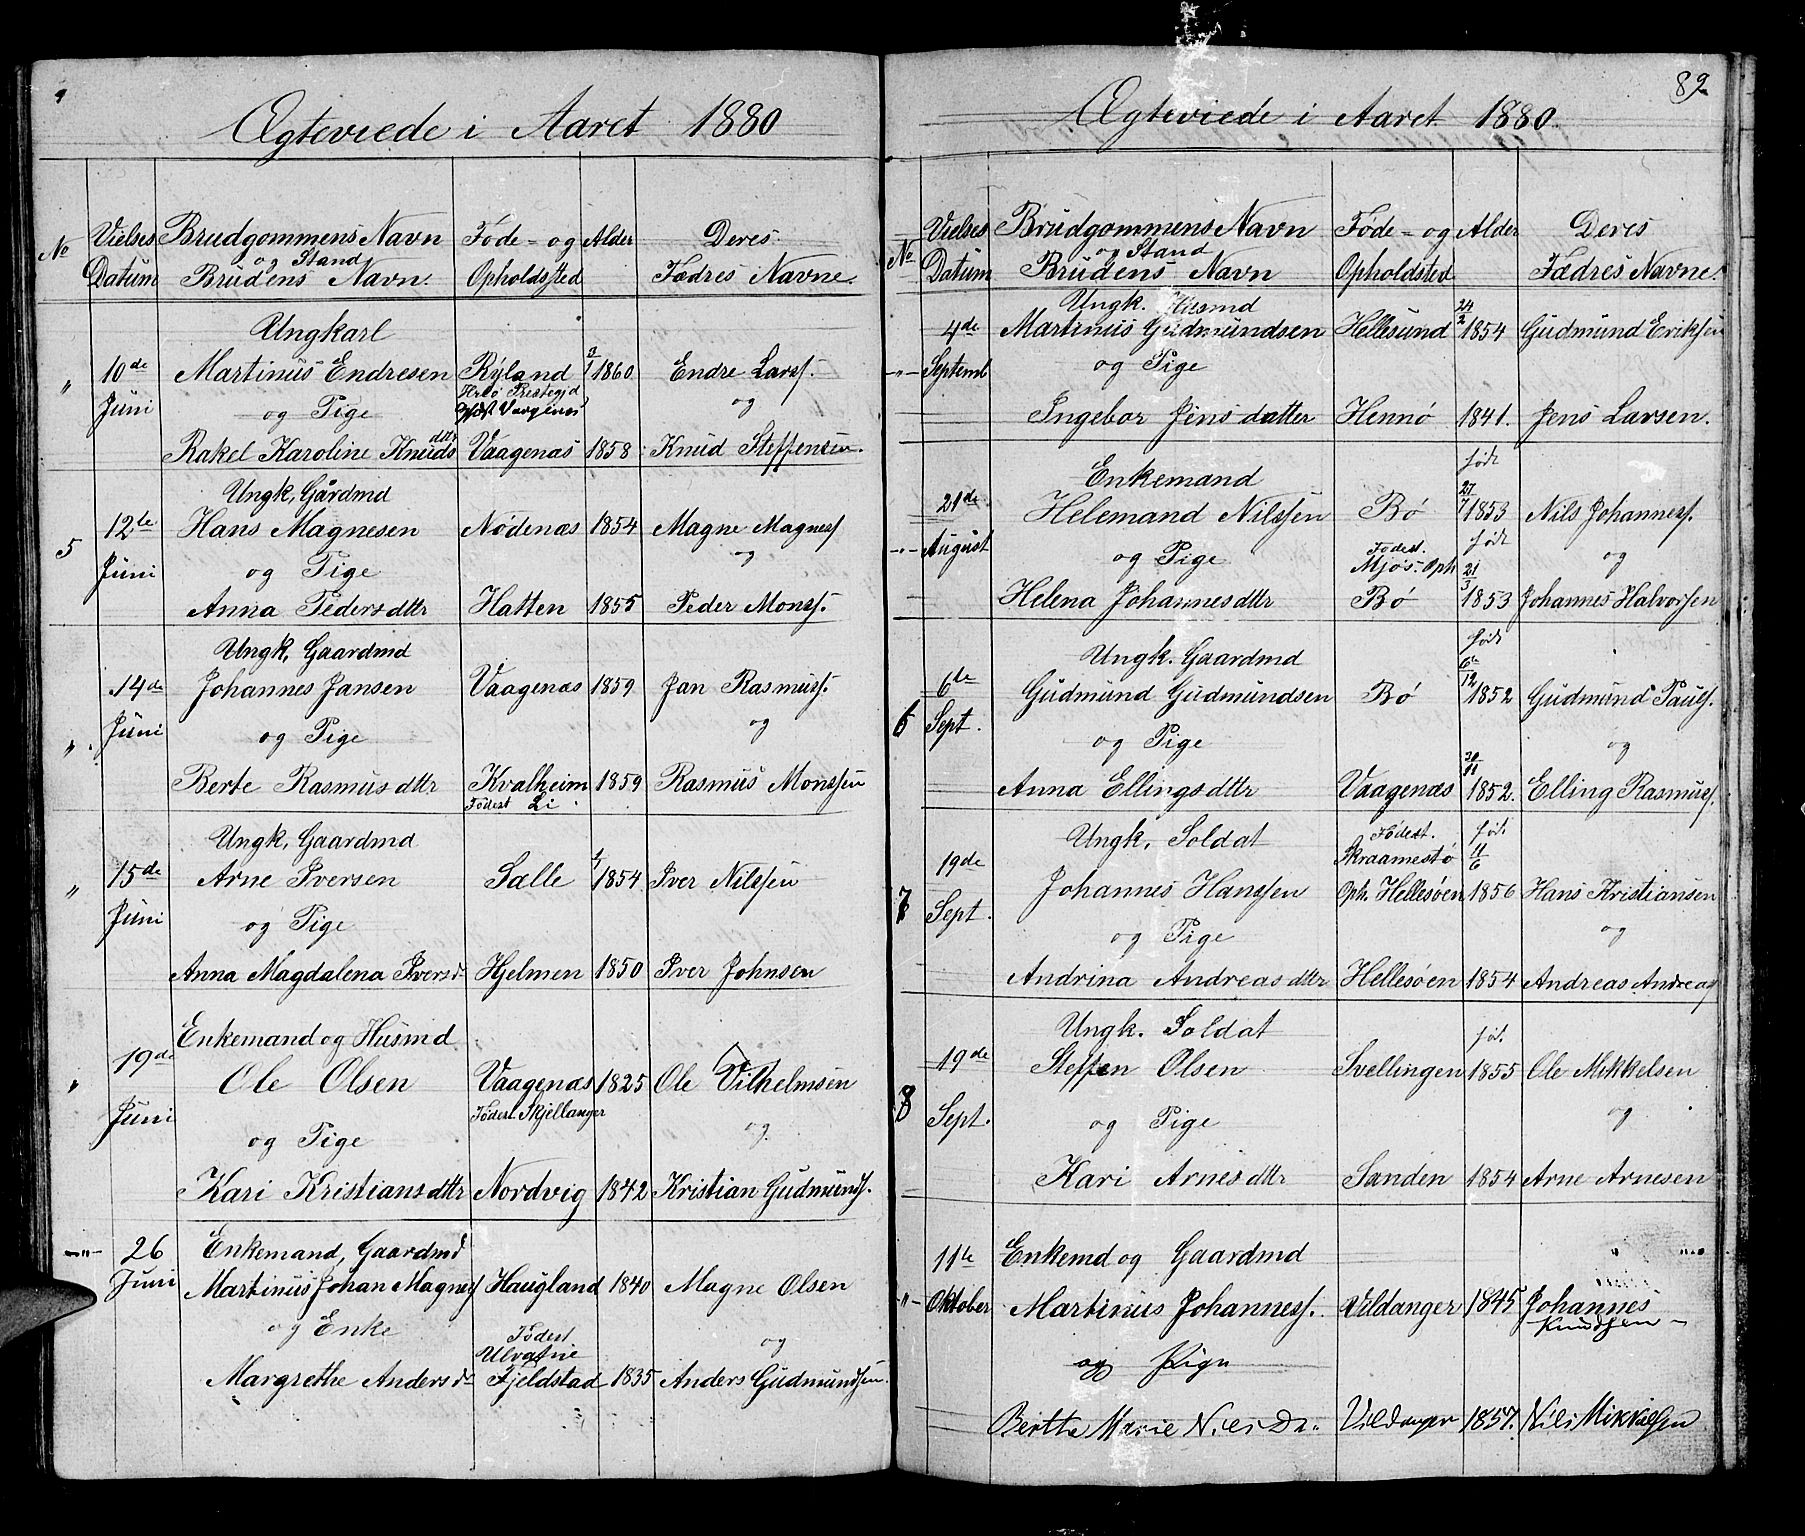 Ægteviede i Aaret 1880
No Vielses Datum Brudgommens Navn og Stand Brudens Navn. Føde- og Opholdssted Alder Deres Fædres Navne.
Ungkarl
" 10de Juni Martinus Endresen Ryland 3/1 1860 Endre Larss.
og Pige og
Rakel Karoline Knudsdttr Vaagenæs 1858 Knud Steffensen.
Ungk, Gårdmd
5 12te Juni Hans Magnesen Nødenæs 1854 Magne Magness
og Pige og
Anna Pedersdttr Hatten 1855 Peder Monss.
Ungk, Gaardmd
" 14de Juni Johannes Jansen Vaagenæs 1859 Jan Rasmuss.
og Pige og
Berte Rasmusdttr Kvalheim 1859 Rasmus Monssen
Fødest Li
Ungk, Gaardmd
" 15de Juni Arne Iversen Sælle 1854 Iver Nilssen
og Pige
Anna Magdalena Iversd Hjelmen 1850 Iver Johnsen
Enkemand og Husmd
" 19de Juni Ole Olsen Vaagenæs 1825 Ole Vilhelmsen
Fødest Skjellanger
og Pige og
Kari Kristiansdttr Nordvig 1842 Kristian Gudmunds.
-"- 26 Juni Enkemand, Gaardmd
Martinus Johan Magnes Haugland 1840 Magne Olsen
og Enke og
Fødest
Ulvatne
Margrethe Andersd Fjeldstad 1835 Anders Gudmundsen.
89
Ægteviede i Aaret 1880
No Vielses Datum Brudgommens Navn og Stand Brudens Navn Føde- og Opholdsted Alder Deres Fædres Navne.
Ungk. Husmd
-"- 4de Septemb Martinus Gudmundsen Hellesund 24/2 1854 Gudmund Eriksen
og Pige
Ingebor Jensdatter Hennø 1841. Jens Larsen.
Enkemand født
-"- 21de August Helemand Nilssen Bø 27/7 1853 Nils Johanness.
og Pige Fødest. Mjøs- Oph født 21/3 og
Helena Johannesdttr Bø 1853 Johannes Halvorsen
Ungk. Gaardmd født
6 6te Sept. Gudmund Gudmundsen Bø 6te/12 1852 Gudmund Pauls.
og Pige og
Anna Ellingsdttr Vaagenæs 20/11 1852. Elling Rasmuss.
Ungk, Soldat Fødest. Skraamestø fød. 11/6
7 19de Sept. Johannes Hanssen Oph. Hellesøen 1856 Hans Kristiansen
og Pige og
Andrina Andreasdttr Hellesøen 1854 Andreas Andreas
Ungk. Soldat fød.
8 19de Sept. Steffen Olsen Svellingen 1855 Ole Mikkelsen
og Pige og
Kari Arnesdttr Sanden 1854 Arne Arnesen
11te Enkemd og Gaardmd
-"- Oktober Martinus Johanness. Vildanger 1845 Johannes Knudsen
og Pige
Berthe Marie Nilsdr. Vildanger 1857. Nils Mikkelsen